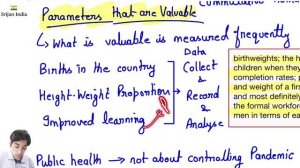 Srijan India
Parameters that are Valuable
↳ What is valuable is measured frequently
Births in the country
Height-Weight Proportion
Improved learning
Data
Collect
&
Record
&
Analyse
birthweights; the h
children when they
completion rates;
and weight of a firs
and most definitely
the formal workforc
men in terms of ea
Public health → not about controlling Pandemic